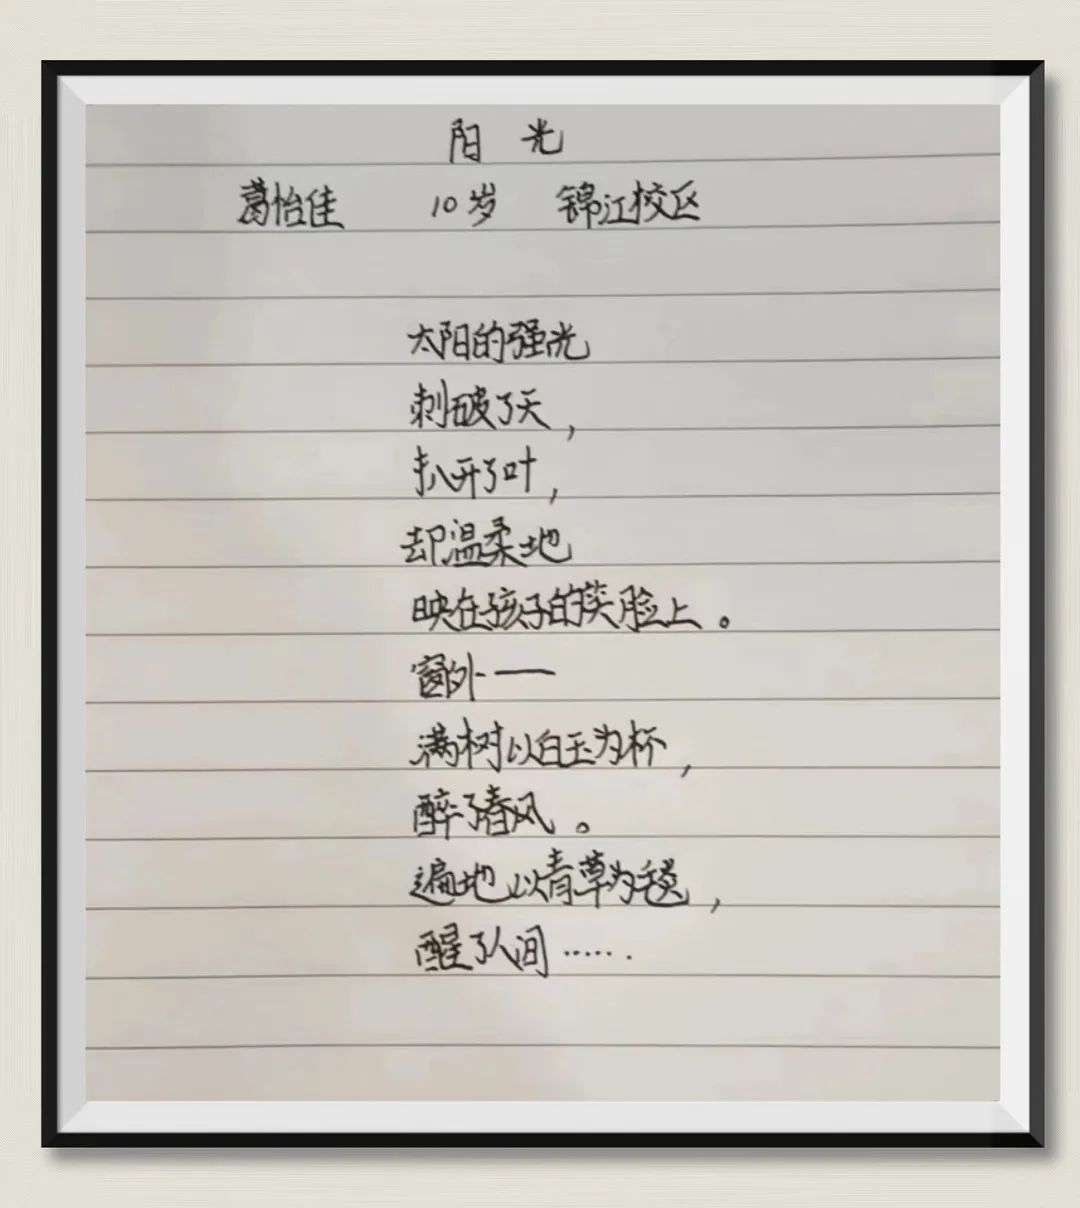 阳 光
葛怡佳 10岁 锦江校区
太阳的强光
刺破了天，
扒开了叶，
却温柔地
映在孩子的笑脸上。
窗外——
满树以白玉为杯，
醉了春风。
遍地以青草为毯，
醒了人间……